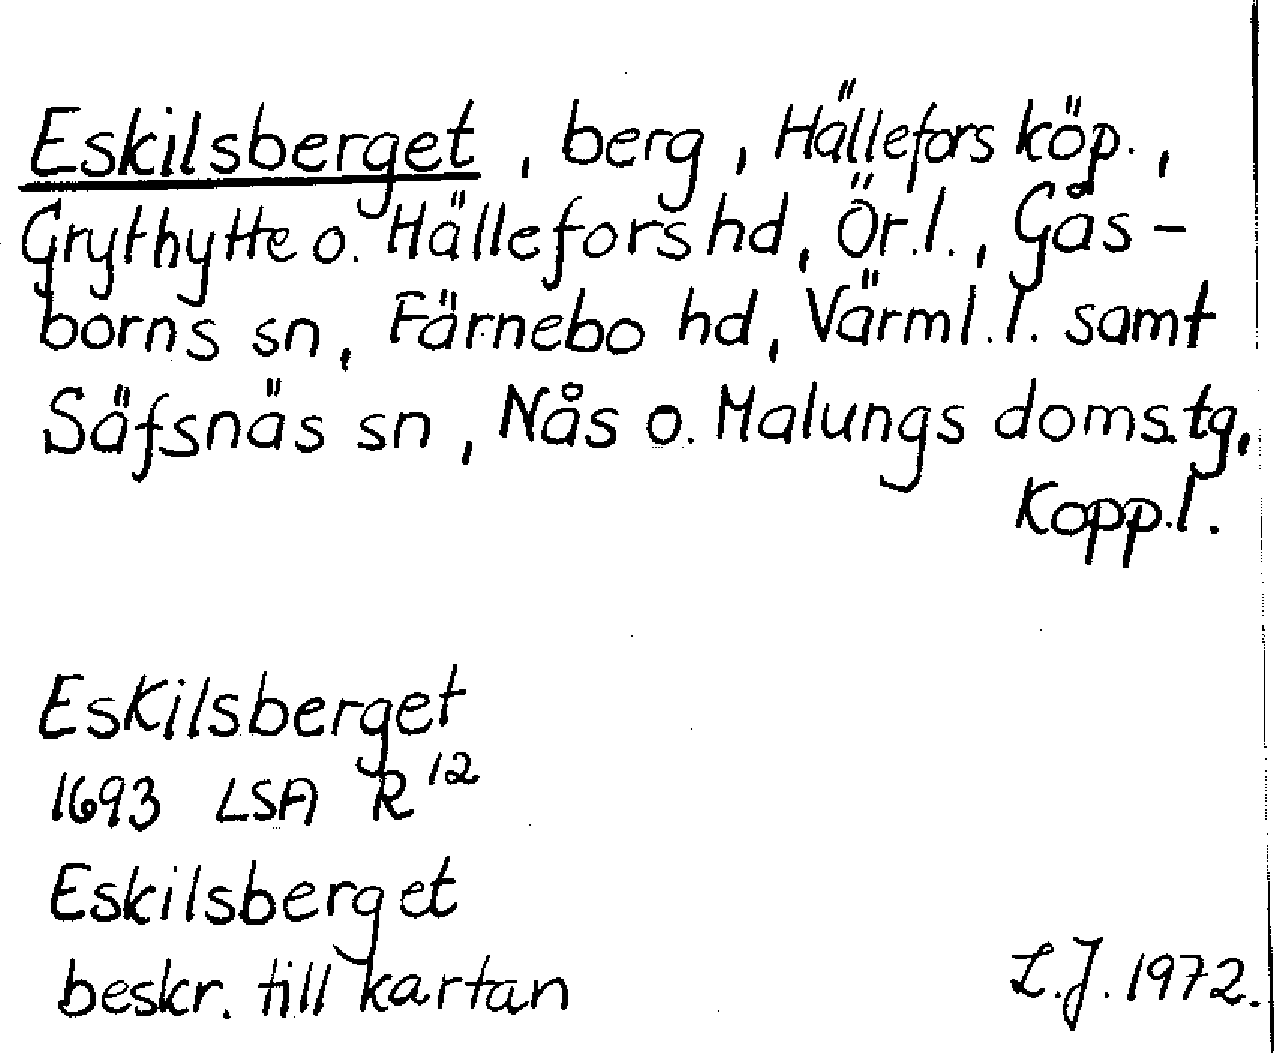 Eskilsberget, berg, Hällefors köp.,
Grythytte o. Hällefors hd, Ör.l., Gås-
borns sn, Färnebo hd, Värml.l. samt
Säfsnäs sn, Nås o. Malungs doms.tg,
Kopp.l.
Eskilsberget
1693 LSA R 12
Eskilsberget
beskr. till kartan
L.J. 1972.